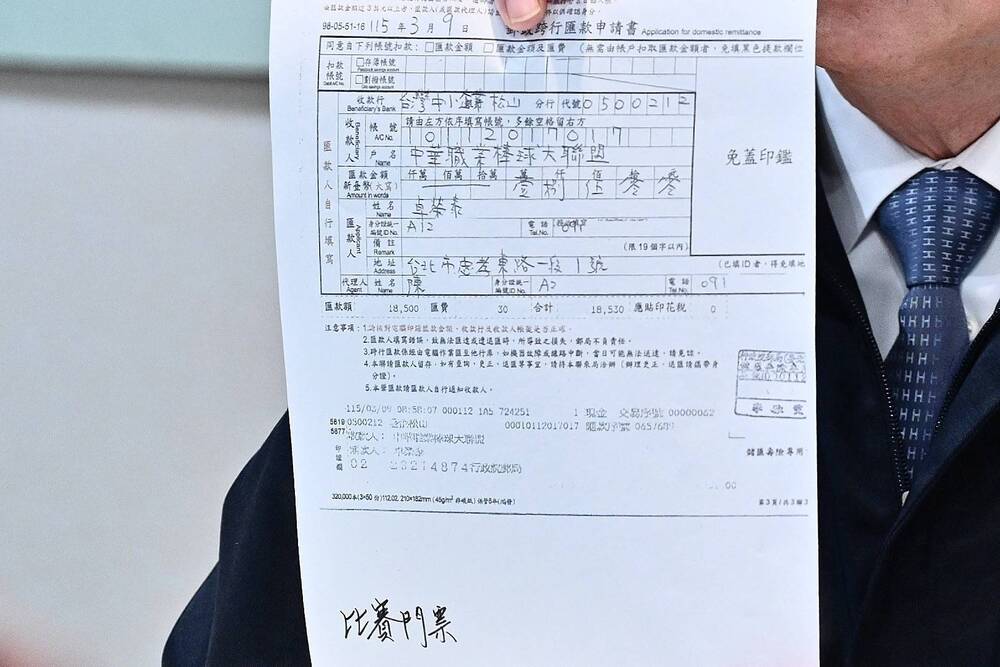 98-05-51-16 115 年 3 月 9 日 郵政跨行匯款申請書 Application for domestic remittance
同意自下列帳號扣款：□匯款金額 □匯款金額及匯費 (無需由帳戶扣取匯款金額者，免填黑色提款欄位
扣款帳號 □存簿帳號
□劃撥帳號
收款行 Beneficiary's Bank 台灣中小企業銀行松山 分行 代號 0500212
請由左方依序填寫帳號，多餘空格留右方
收款人 Beneficiary 帳號 A/C No. 10112017017
戶名 Name 中華職業棒球大聯盟
免蓋印鑑
匯款金額 新臺幣(大寫) Amount in words 仟萬 佰萬 拾萬 萬 仟 佰 拾 元
壹 捌 伍 零 零
匯款人自行填寫
匯款人 Applicant 姓名 Name 卓榮泰
身分證統一編號ID No. A12 電話 Tel.No. 09
備註 Remark (限19個字以內)
地址 Address 台北市忠孝東路一段1號 (已填ID者，得免填地
代理人 Agent 姓名 Name 陳 身分證統一編號ID No. A2 電話 Tel No. 091
匯款額 18,500 匯費 30 合計 18,530 應貼印花稅 0
注意事項：1.請核對電腦印錄匯款金額、收款行及收款人帳號是否正確。
2.匯款人填寫錯誤，致無法匯達或遭退匯時，所導致之損失，郵局不負責任。
3.跨行匯款係經由電腦作業匯至他行庫，如機器故障或線路中斷，當日可能無法送達，請見諒。
4.本聯請匯款人留存，如有查詢、更正、退匯等事宜，請持本聯來局洽辦 (辦理更正、退匯請攜帶身
分證)。
5.本筆匯款請匯款人自行通知收款人。
115/03/09 08:58:07 000112 1A5 724251 1 現金 交易序號 00000062
0500212 00010112017017 匯款序號
收款人： 中華職業棒球大聯盟
匯款人：
儲匯壽險專用
第3頁/共3聯
比賽門票